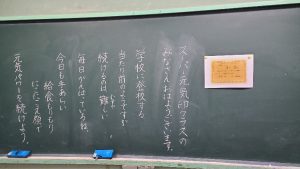 スーパー元気印クラスの
みなさんおはようございます。
学校に登校する
当たり前のようですが、
続けるのは難しい
毎日がんばっているね。
今日も手あらい
給食もりもり
にこにこ顔で
元気パワーを続けよう